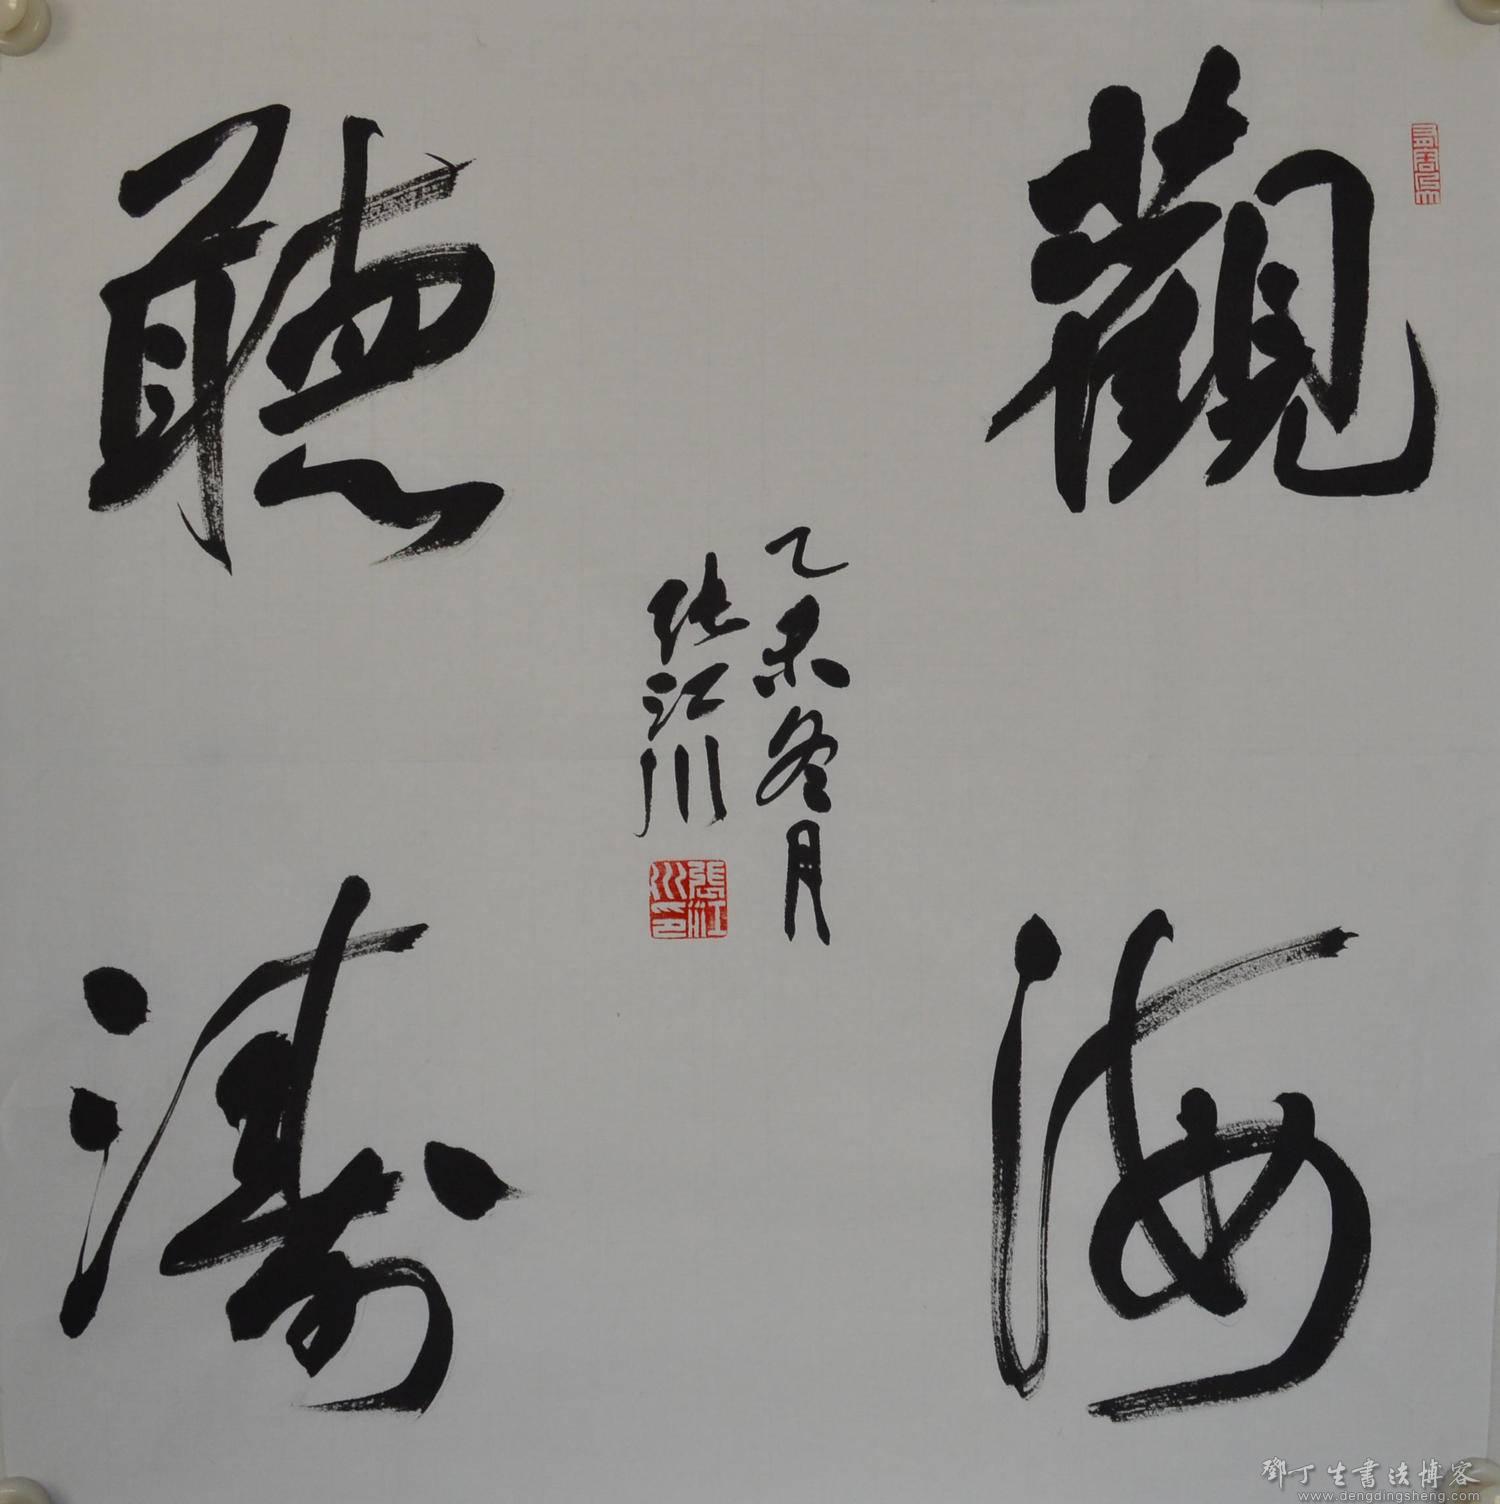 觀海
聽濤
乙未冬月
張江川
張江川印
鄧丁生書法博客
www.dengdingsheng.com